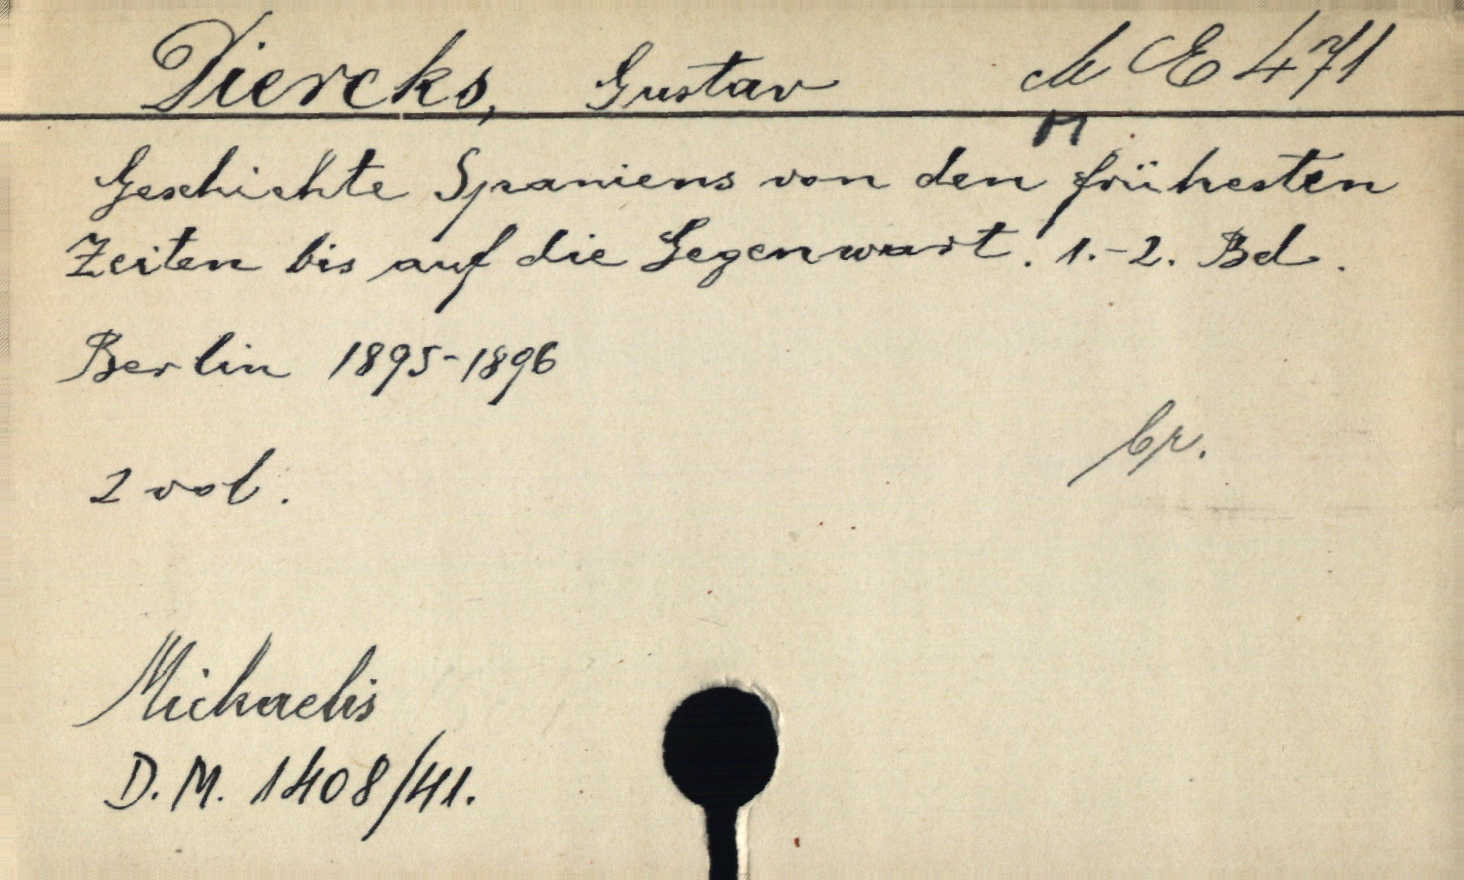 Diercks, Gustav M E 471
Geschichte Spaniens von den frühesten
Zeiten bis auf die Gegenwart. 1.-2. Bd.
Berlin 1895-1896
br.
2 vol.
Michaelis
D.M. 1408/41.